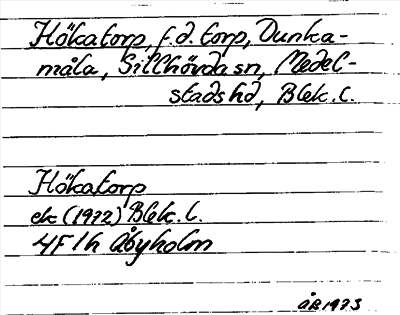 Hökatorp, f.d. torp, Dunka-
måla, Sillhövda sn, Medel-
stads hd, Blek. l.
Hökatorp
ek (1972) Blek. l.
4F 1h Åbyholm
ÅB 1973